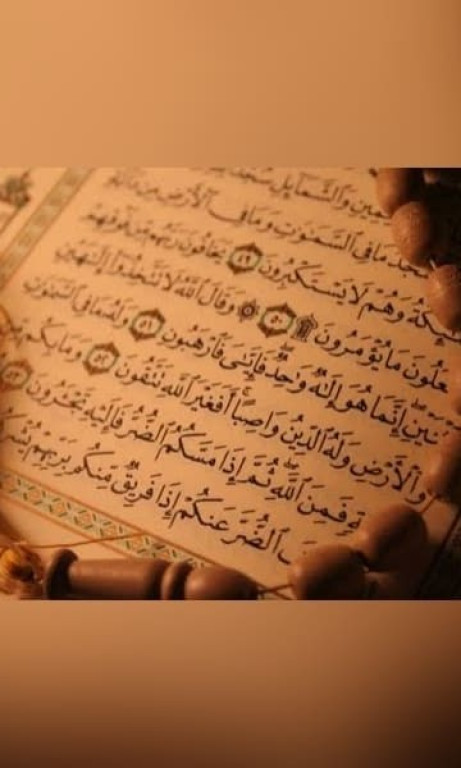 وَٱلشَّمَآئِلِ سُجَّدًا
مَا فِى ٱلسَّمَٰوَٰتِ وَمَا فِى ٱلْأَرْضِ مِن دَآبَّةٍ
وَهُمْ لَا يَسْتَكْبِرُونَ ٤٩ يَخَافُونَ رَبَّهُم مِّن فَوْقِهِمْ
عَلُونَ مَا يُؤْمَرُونَ ۩ ٥٠ ۞ وَقَالَ ٱللَّهُ لَا تَتَّخِذُوٓا۟ إِلَٰهَيْنِ
نَيْنِ إِنَّمَا هُوَ إِلَٰهٌ وَٰحِدٌ فَإِيَّٰىَ فَٱرْهَبُونِ ٥١ وَلَهُۥ مَا فِى ٱلسَّمَٰوَٰتِ
وَٱلْأَرْضِ وَلَهُ ٱلدِّينُ وَاصِبًا أَفَغَيْرَ ٱللَّهِ تَتَّقُونَ ٥٢ وَمَا بِكُم
ةٍ فَمِنَ ٱللَّهِ ثُمَّ إِذَا مَسَّكُمُ ٱلضُّرُّ فَإِلَيْهِ تَجْـَٔرُونَ ٥٣
ٱلضُّرَّ عَنكُمْ إِذَا فَرِيقٌ مِّنكُم بِرَبِّهِمْ يُشْرِكُ